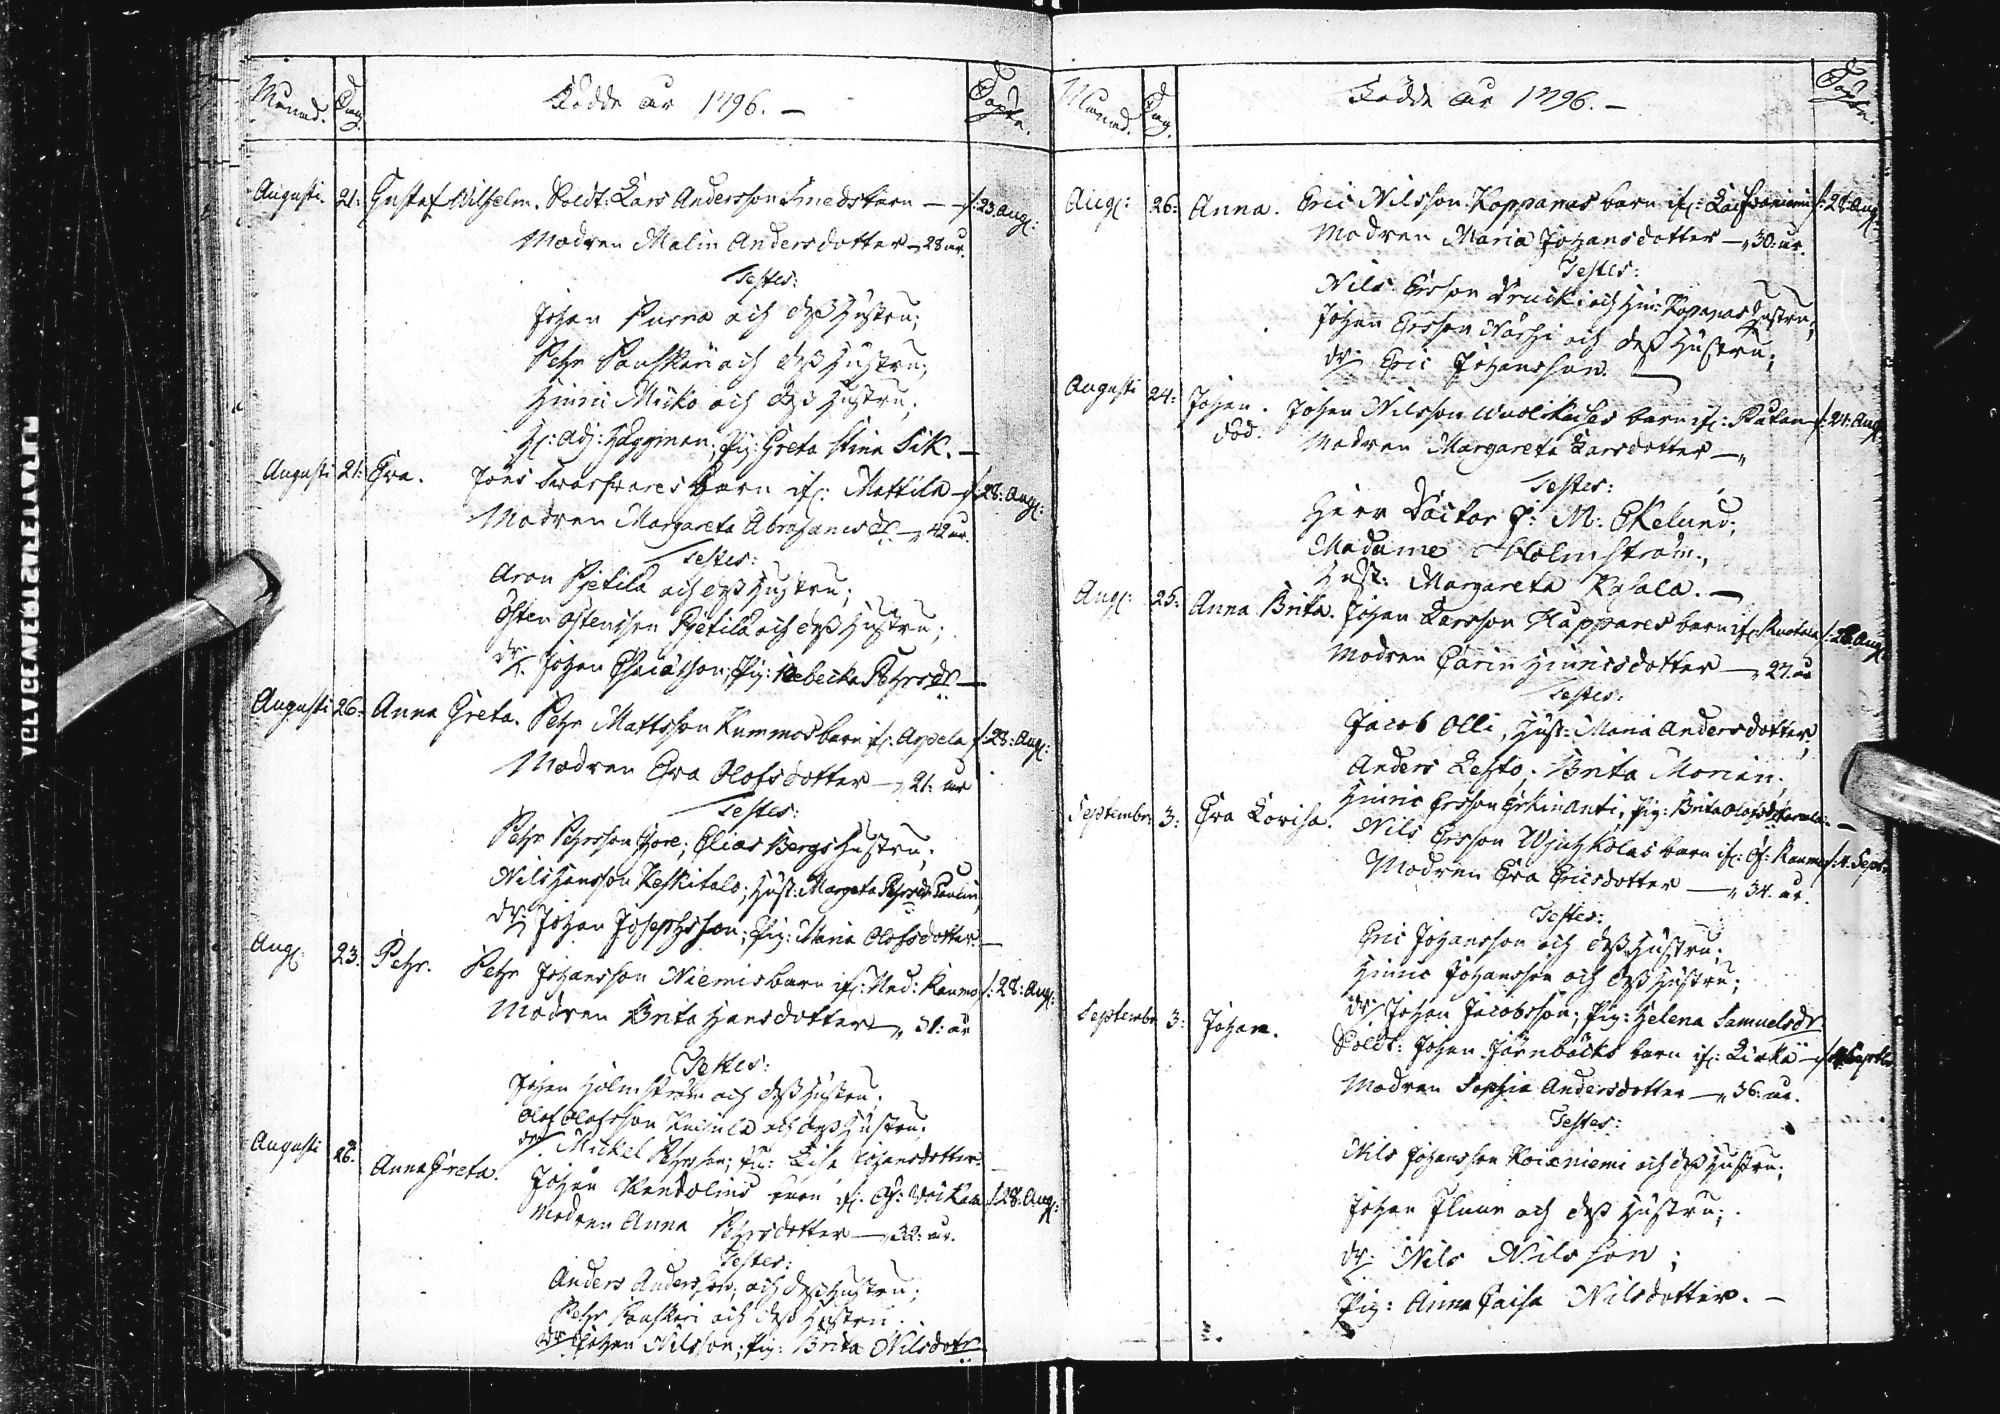 Månad. Dag. Födde år 1796. — Döpte.
Augusti. 21: Gustaf Wilhelm. Soldt: Lars Andersson Smedstarn — d: 23 Aug:
Modren Malin Andersdotter — 28 år.
Testes:
Johan Purra och dess Hustru;
Pehr och dess Hustru;
Hinric Micko och dess Hustru;
H: Adj: Häggman; Pig: Greta Stina Sik. —
Augusti 21: Eva. Jöns barn if: Mattila — d: 28: Aug:
Modren Margareta Abrahamsdr. — 42 år.
Testes:
Aron Pietila och dess Hustru;
Östen Östensson Pietila och dess Hustru;
dr: Johan Esaiasson; Pig: Rebecka Pehrsdr —
Augusti 26: Anna Greta. Pehr Mattsson Kummos barn if: Arpela d: 28: Aug:
Modren Eva Olofsdotter — 21: år
Testes:
Pehr Pehrsson; Elias Bergs Hustru;
Nils Hansson Keskitalo; Hust: Margeta Pehrsdr
dr: Johan Josephsson; Pig: Maria Olofsdotter. —
Aug: 23. Pehr. Pehr Johansson Niemis barn if: Ned: Raumo d: 28: Aug:
Modren Brita Hansdotter — 31: år
Testes:
Johan Holmström och dess Hustru;
Olof Olofsson och dess Hustru;
dr: Mickel Pehrsson; Pig: Lisa Johansdotter.
Augusti 26. Anna Greta. Johan Wendelius barn if: Öf: Voikala d: 28: Aug:
Modren Anna Pehrsdotter — 32: år.
Testes:
Anders Andersson, och dess Hustru;
Pehr och dess Hustru.
dr: Johan Nilsson; Pig: Brita Nilsdotr.
Månad. Dag. Födde år 1796. — Döpte.
Aug: 26: Anna. Eric Nilsson Koppanas barn if: d: 28 Aug:
Modren Maria Johansdotter — 30: år.
Testes:
Nils Ersson och Hin: Kopanas Hustru;
Johan Ersson och dess Hustru;
dr: Eric Johansson.
Augusti 24: Johan. Johan Nilsson barn if: d: 24: Aug:
död. Modren Margareta Larsdotter —
Testes:
Herr Doctor M: Ekelund;
Madame Holmström;
Hust: Margareta Kysala. —
Aug: 25: Anna Brita. Johan Larsson Kappares barn if: d: 28 Aug:
Modren Carin Hinricsdotter — 27 år
Testes:
Jacob Olli, Hust: Maria Andersdotter,
Anders Lehto, Brita Morian.
Hinric Ersson Erkinanti; Pig: Brita Olofsdr —
Septembr 3: Eva Lovisa. Nils Ersson barn if: Öf: Raumo d: 4. Sept:
Modren Eva Ericsdotter — 34. år.
Testes:
Eric Johansson och dess Hustru;
Hinric Johansson och dess Hustru;
dr: Johan Jacobsson; Pig: Helena Samuelsdr.
Septembr 3: Johan. Soldt: Johan Järnbäcks barn if: Liaka — d: 4 Septbr
Modren Sophia Andersdotter — 36. år.
Testes:
Nils Johansson Koivuniemi och dess Hustru;
Johan och dess Hustru;
dr: Nils Nilsson;
Pig: Anna Caisa Nilsdotter. —